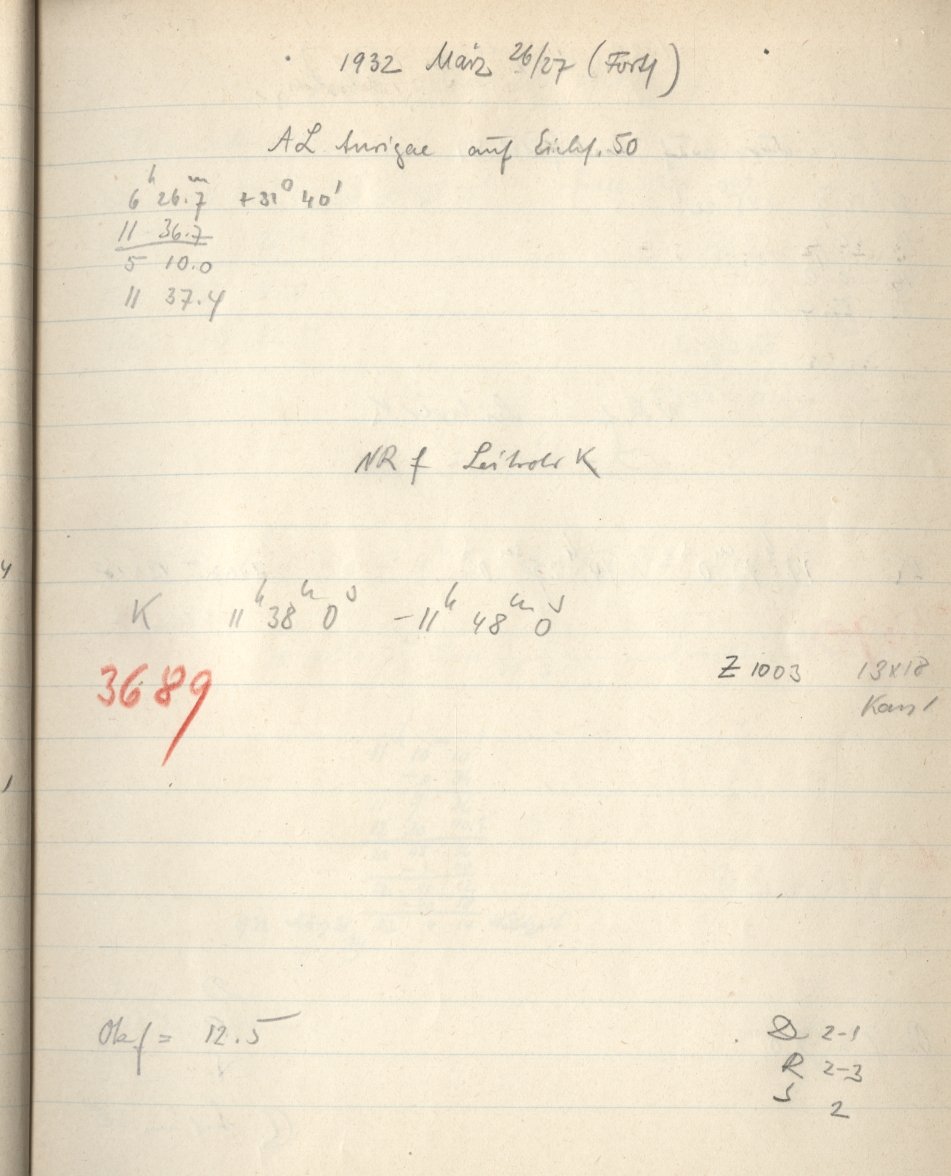 1932 März 26/27 (Forts)
AL Aurigae auf Eichf. 50
6h 26.7m +31° 40'
11 36.7
5 10.0
11 37.4
NR f Leitrohr K
K 11h 38m 0s -11h 48m 0s
3689 Z 1003 13x18
Ok f = 12.5 D 2-1
R 2-3
S 2